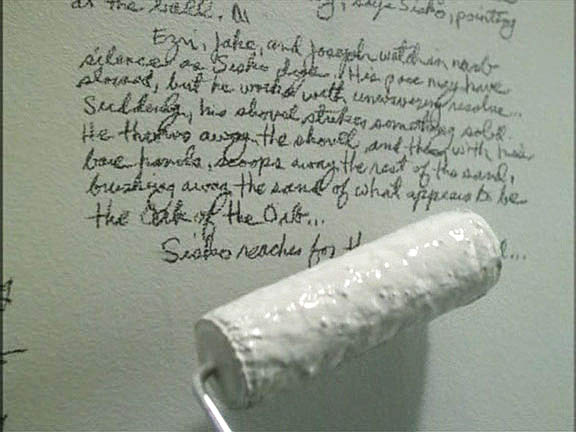 at the wall.
says Sisko, pointing
Ezri, Jake, and Joseph watch in numb
silence as Sisko digs. His pace may have
slowed, but he works with unwavering resolve...
Suddenly, his shovel strikes something solid.
He throws away the shovel, and then with his
bare hands, scoops away the rest of the sand,
brushing away the sand of what appears to be
the Orb of the Orb...
Sisko reaches for th